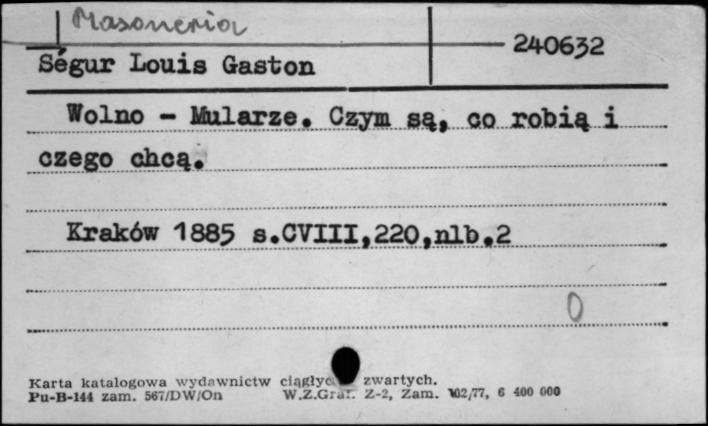 Masoneria
240632
Ségur Louis Gaston
Wolno - Mularze. Czym są, co robią i
czego chcą.
Kraków 1885 s.CVIII,220,nlb.2
0
Karta katalogowa wydawnictw ciągłyc zwartych.
Pu-B-144 zam. 567/DW/On W.Z.Graf. Z-2, Zam. 102/77, 6 400 000